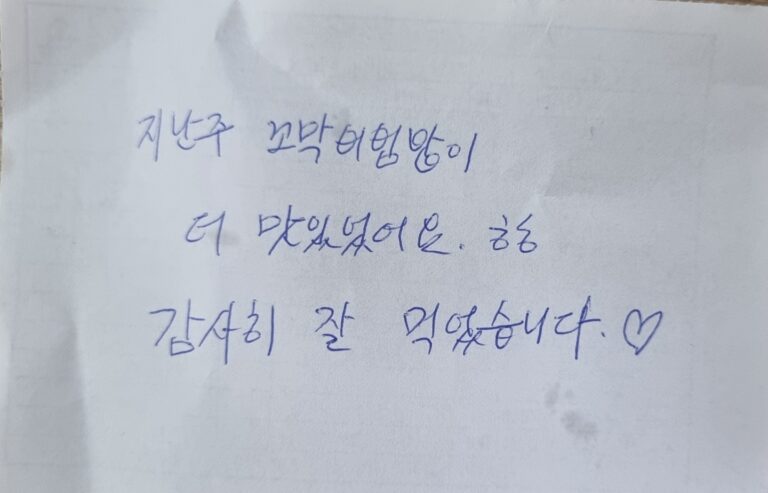 지난주 꼬막비빔밥이
더 맛있었어요. ㅎㅎ
감사히 잘 먹었습니다. ♡